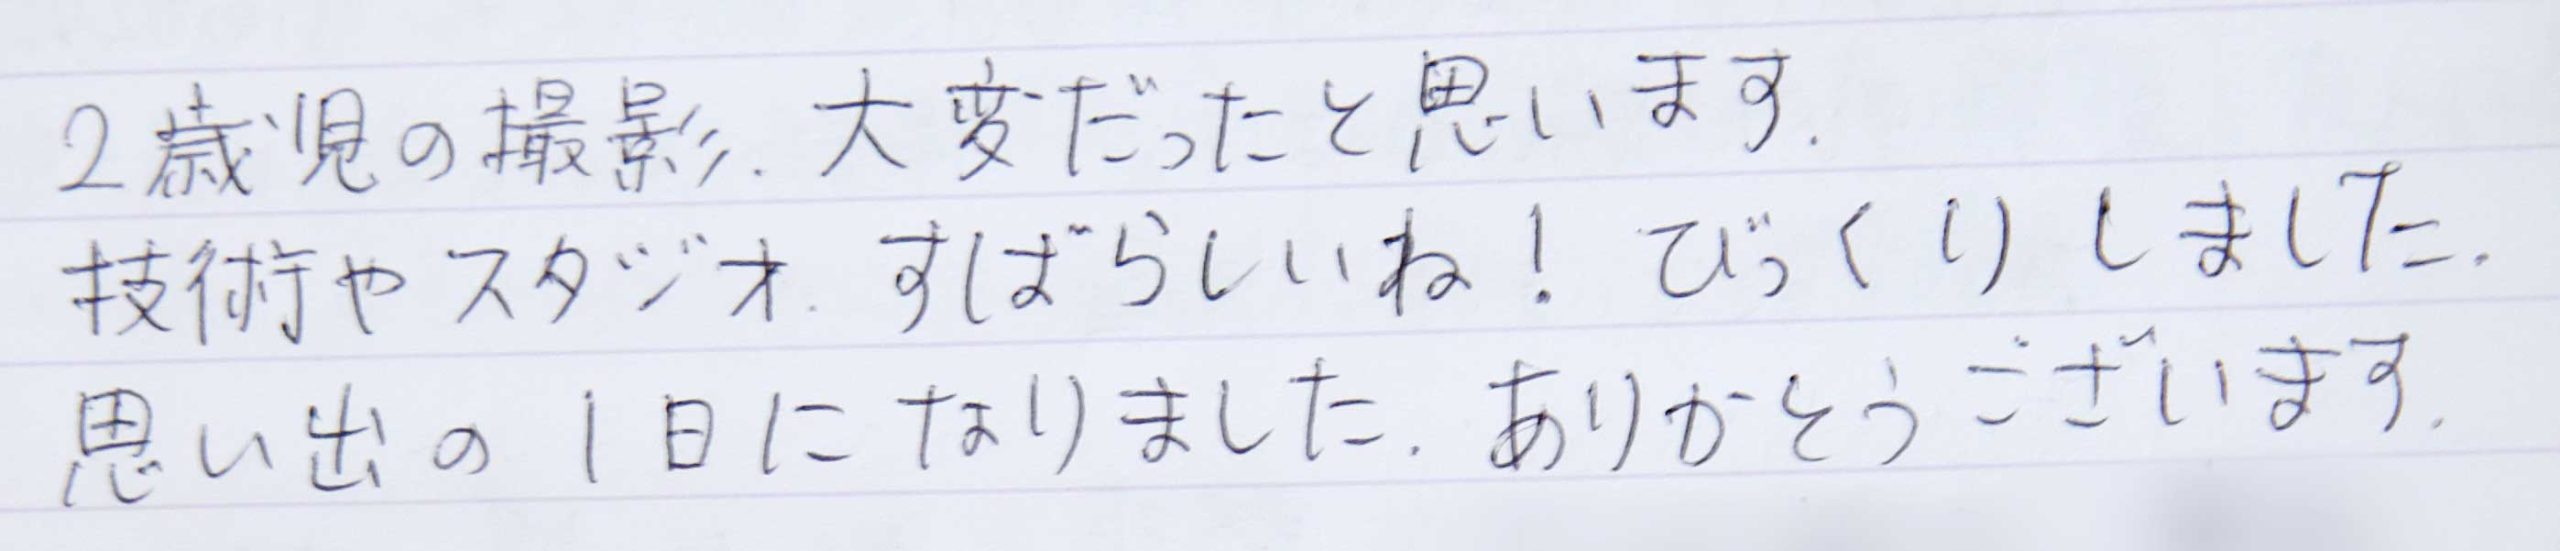 2歳児の撮影.大変だったと思います.
技術やスタジオ.すばらしいね!びっくりしました.
思い出の1日になりました.ありがとうございます.